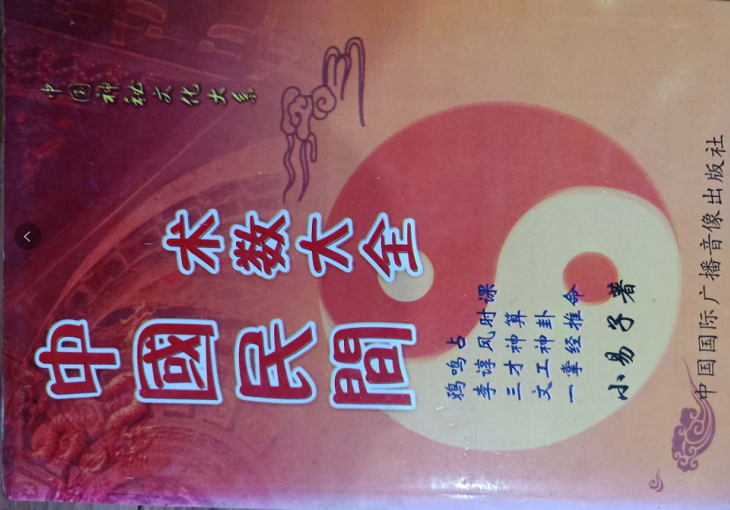 中国神秘文化大系
中國民間
术数大全
鸦鸣占
李谆风时课
三才神算
文工神卦
一掌经推命
小易子著
中国国际广播音像出版社